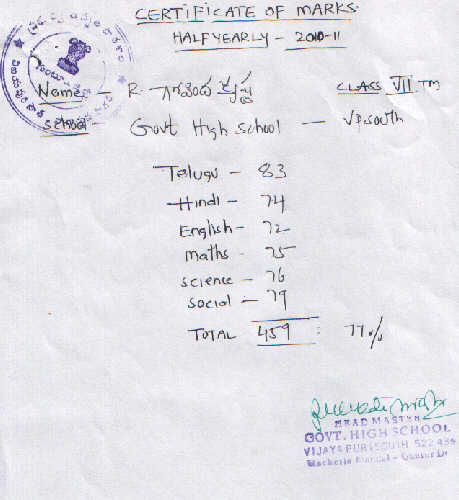 CERTIFICATE OF MARKS
HALF YEARLY - 2010-11
Name - R. గోవింద కృష్ణ CLASS VII TM
School - Govt High School - V.P. South
Telugu - 83
Hindi - 74
English - 72
maths - 75
science - 76
social - 79
TOTAL 459 : 77%
HEAD MASTER
GOVT. HIGH SCHOOL
VIJAYA PURI SOUTH 522 439
Macherla Mandal - Guntur Dt